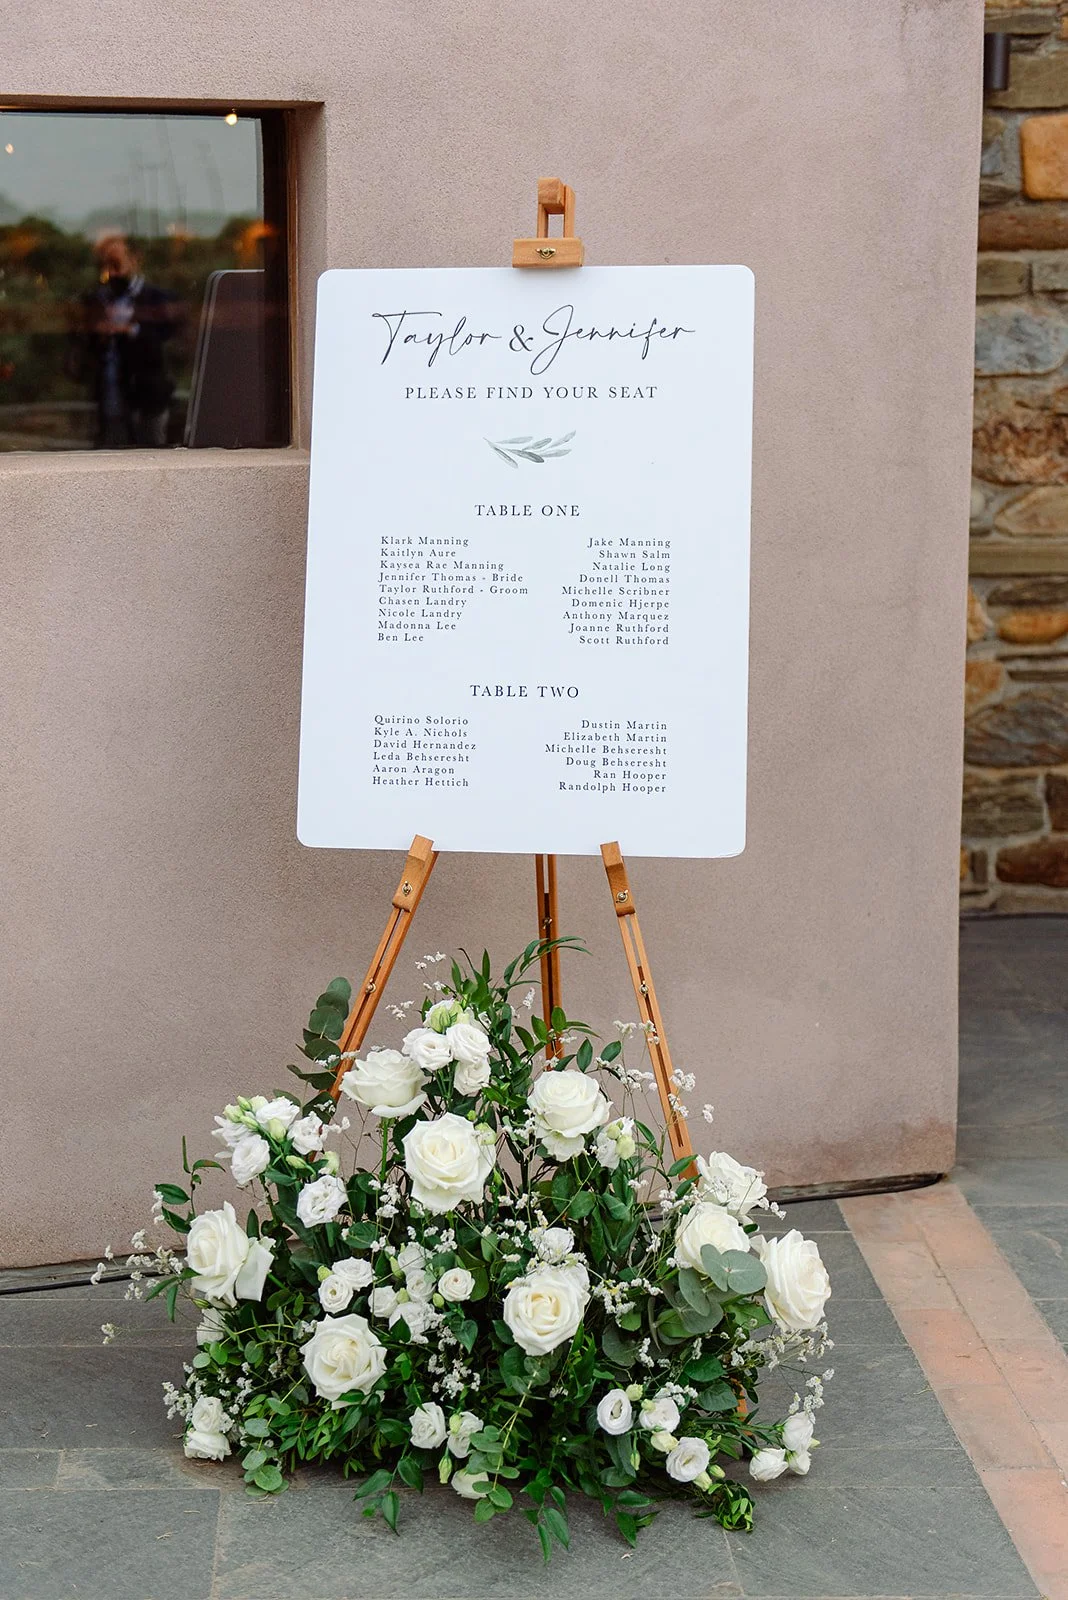 Taylor & Jennifer
PLEASE FIND YOUR SEAT
TABLE ONE
Klark Manning
Kaitlyn Aure
Kaysea Rae Manning
Jennifer Thomas - Bride
Taylor Ruthford - Groom
Chasen Landry
Nicole Landry
Madonna Lee
Ben Lee
Jake Manning
Shawn Salm
Natalie Long
Donell Thomas
Michelle Scribner
Domenic Hjerpe
Anthony Marquez
Joanne Ruthford
Scott Ruthford
TABLE TWO
Quirino Solorio
Kyle A. Nichols
David Hernandez
Leda Behseresht
Aaron Aragon
Heather Hettich
Dustin Martin
Elizabeth Martin
Michelle Behseresht
Doug Behseresht
Ran Hooper
Randolph Hooper